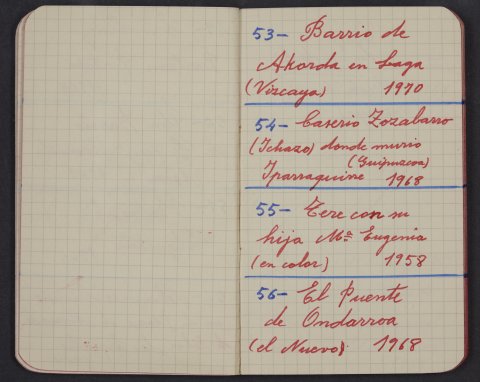 53- Barrio de
Akorda en Laga
(Vizcaya) 1970
54- Caserio Zozabarro
(Ichazo) donde murio
(Guipuzcoa)
Iparraguirre 1968
55- Tere con su
hija Mª Eugenia
(en color) 1958
56- El Puente
de Ondarroa
(el Nuevo) 1968